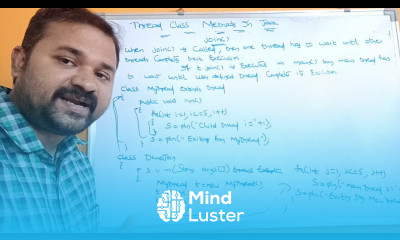 Thread Class Methods In Java
join()
When join() is Called, then one thread has to wait until other
threads Complete their Execution
If t.join() is Executed in main() then main thread has
to wait until user defined thread Complete is Execution
Class MyThread extends Thread
{
Public void run()
{
for(int i=1; i<=5; i++)
{
S=pln("Child thread i="+i);
}
S=pln("Exiting from MyThread");
}
}
Class
{ S v m(String args[])
MyThread t=new MyThread();
for(int j=1; j<=5; j++)
S=pln("Main thread
S=pln("Exiting Main
Mind
Luster